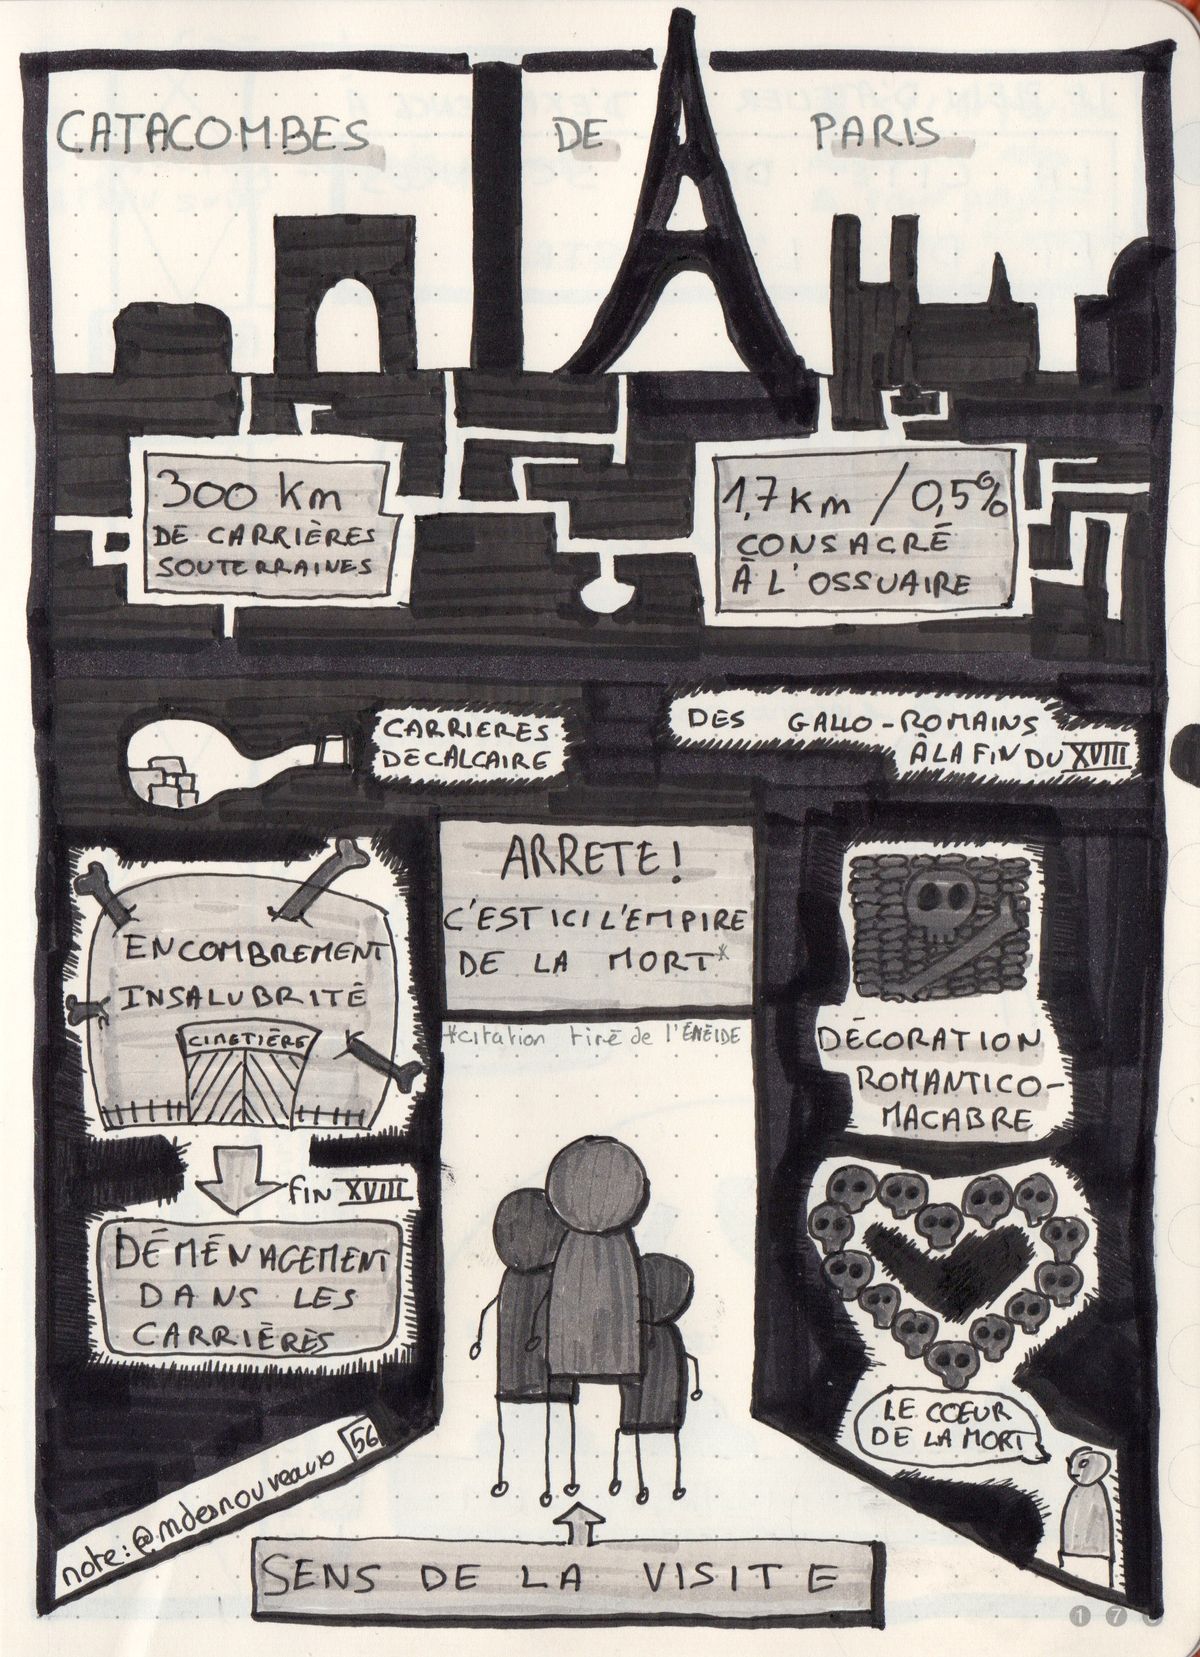 CATACOMBES DE PARIS
300 km
DE CARRIÈRES
SOUTERRAINES
1,7 km / 0,5%
CONSACRÉ
À L'OSSUAIRE
CARRIERES
DE CALCAIRE
DES GALLO-ROMAINS
À LA FIN DU XVIII
ARRETE!
C'EST ICI L'EMPIRE
DE LA MORT*
*citation tiré de l'ÉNÉIDE
ENCOMBREMENT
INSALUBRITÉ
CIMETIÈRE
FIN XVIII
DÉMÉNAGEMENT
DANS LES
CARRIÈRES
DÉCORATION
ROMANTICO-
MACABRE
LE COEUR
DE LA MORT
note: @mdesnouveaux 56
SENS DE LA VISITE
1 7